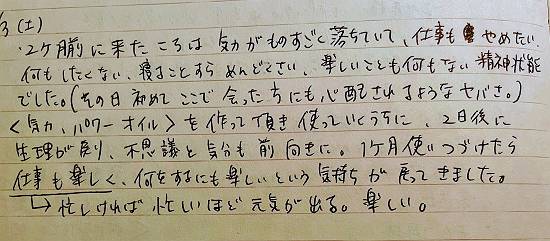 3 (土)
・2ヶ月前に来たころは 気力がものすごく落ちていて、仕事も やめたい、
何もしたくない、寝ることすら めんどくさい、楽しいことも何もない 精神状態
でした。(その日 初めて ここで 会った方にも 心配されるような ヤバさ。)
<気力、パワーオイル> を 作って頂き 使っていくうちに、2日後に
生理が戻り、不思議と気分も 前向きに。1ヶ月使いつづけたら
仕事も楽しく、何をするにも楽しいという 気持ちが 戻ってきました。
↳ 忙しければ 忙しいほど 元気が出る。楽しい。